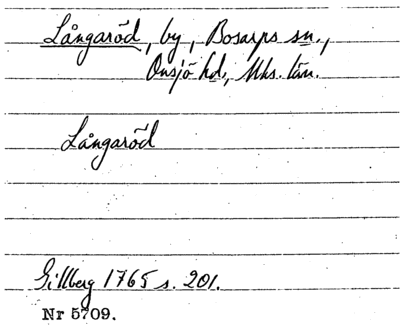 Långaröd, by, Bosarps sn.,
Onsjö hd., Mhs. län.
Långaröd
Gillberg 1765 s. 201.
Nr 5709.